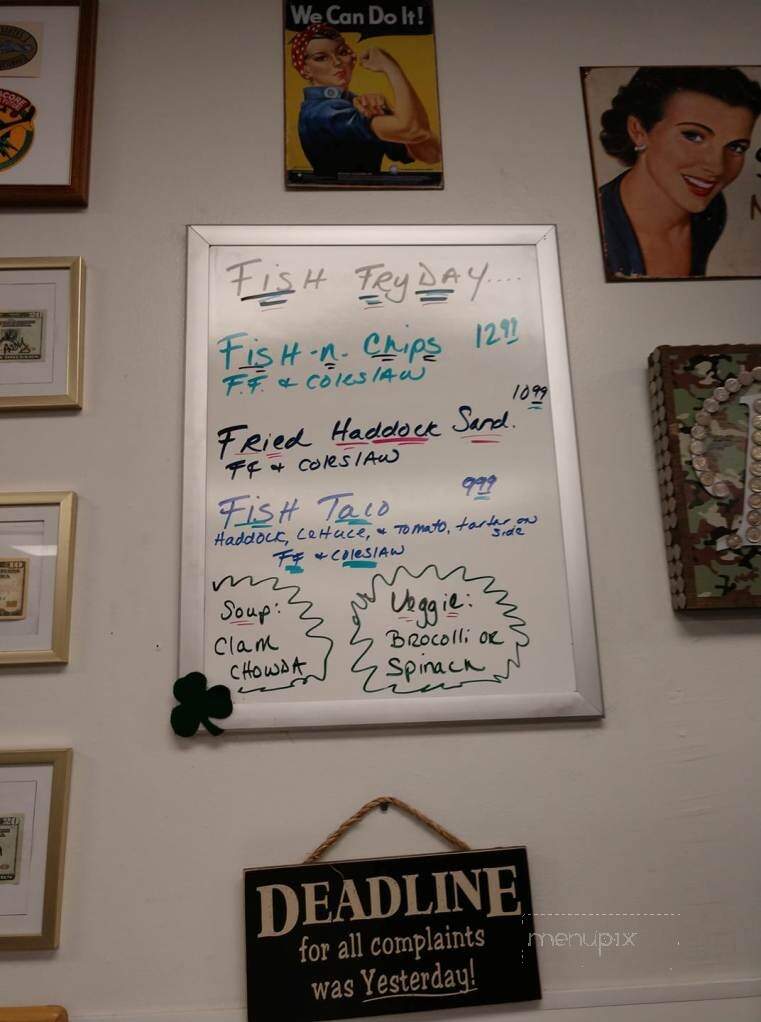 We Can Do It!
CORE
FisH FRyDAY....
FisH -n- Chips 12.99
F.F. & COleslAW
10.99
FRied Haddock Sand.
FF & COleslAW
9.99
FisH Taco
Haddock, Lettuce, & Tomato, tartar on side
FF & COleslAW
Soup:
Clam
CHOWDA
Veggie:
BROcolli OR
Spinach
DEADLINE
for all complaints
was Yesterday!
menupix